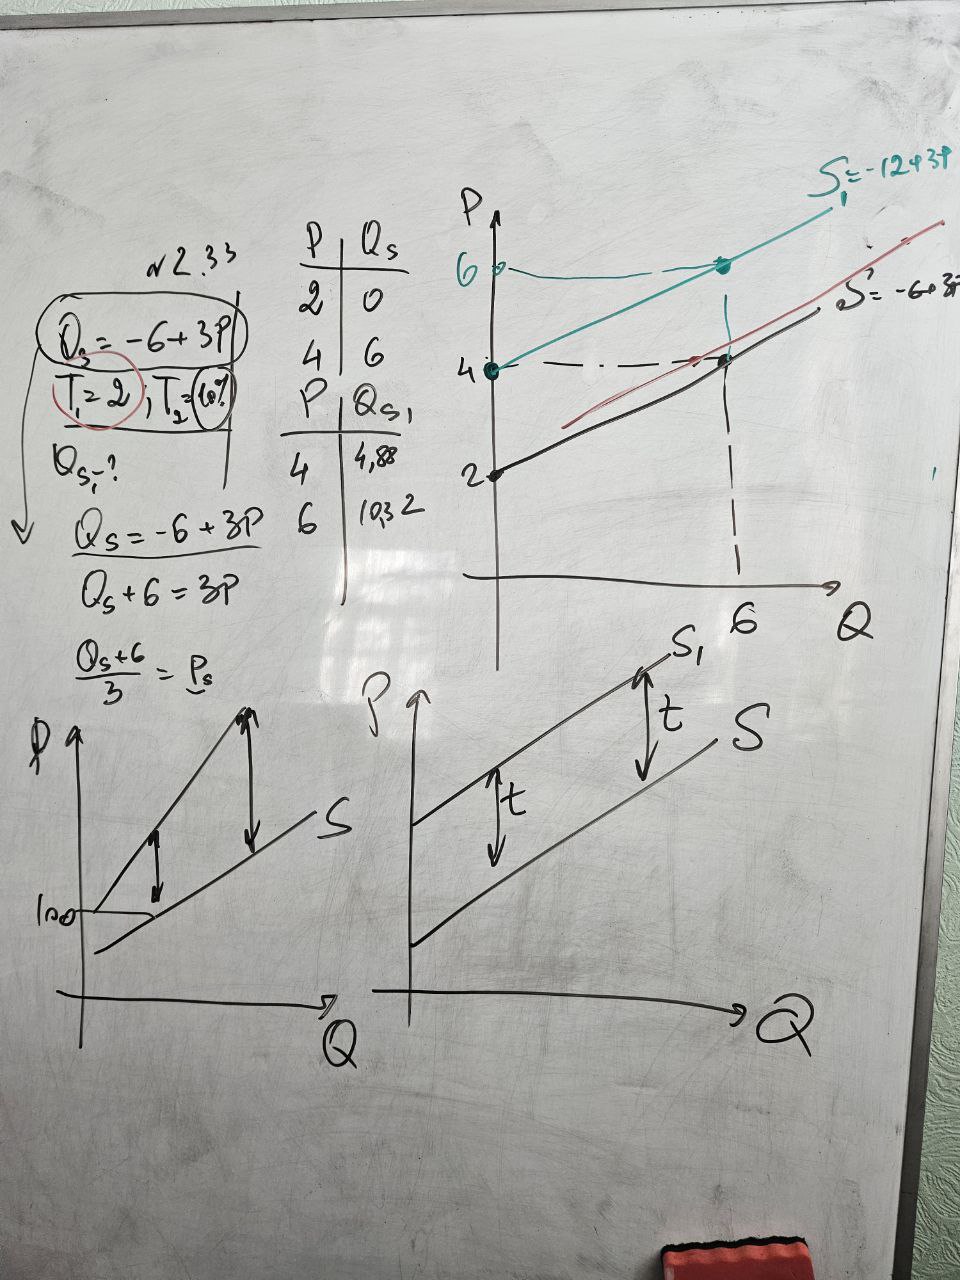 №2.33
Qs = -6+3P
T₁=2, T₂=10%
Qs₁-?
Qs = -6+3P
Qs+6 = 3P
Qs+6
3
= Ps
P | Qs
2 | 0
4 | 6
P | Qs₁
4 | 4,88
6 | 10,32
P
S₁=-12+3P
6
S=-6+3P
4
2
6
Q
P
S
100
Q
P
S₁
t
S
t
Q